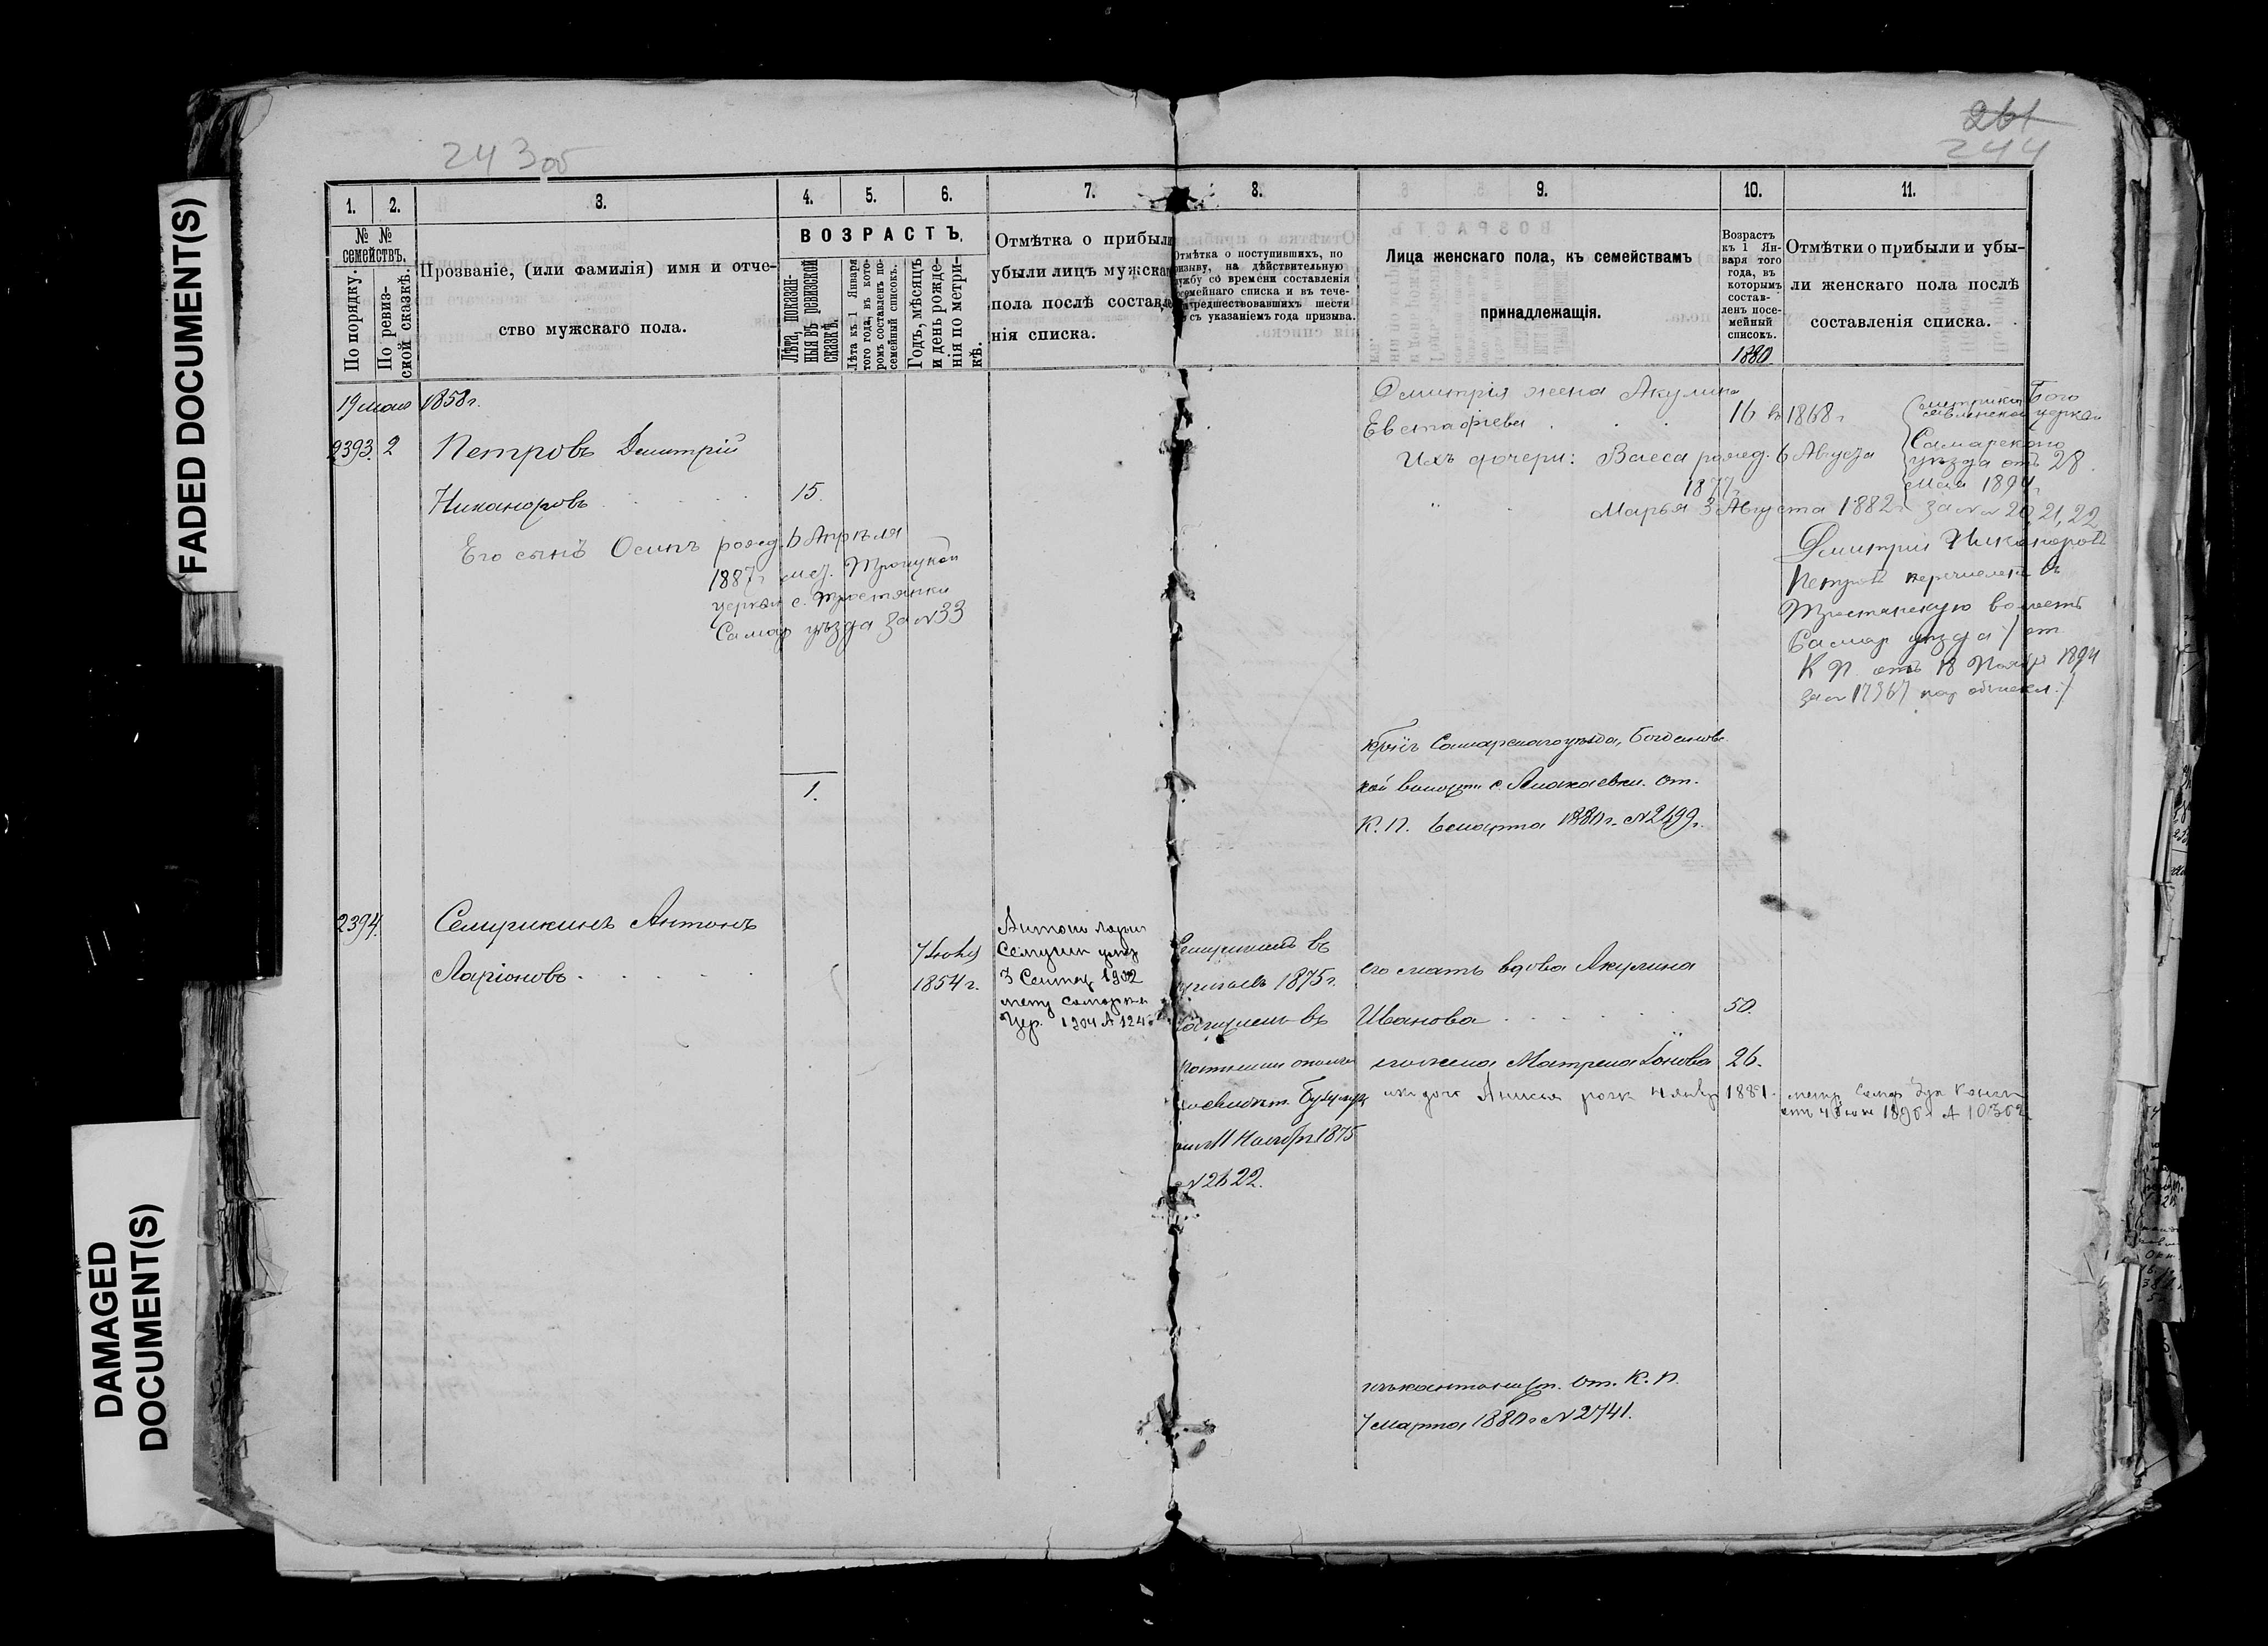 FADED DOCUMENT(S)
DAMAGED
DOCUMENT(S)
243об
261
244
1.
2.
3.
4.
5.
6.
7.
8.
9.
10.
11.
№ №
семействъ.
По порядку.
По ревиз-
ской сказкѣ.
Прозваніе, (или фамилія) имя и отче-
ство мужскаго пола.
ВОЗРАСТЪ.
Лѣта, показан-
ныя въ ревизской
сказкѣ.
Лѣта къ 1 Января
того года, въ кото-
ромъ составленъ по-
семейный списокъ.
Годъ, мѣсяцъ
и день рожде-
нія по метри-
кѣ.
Отмѣтка о прибыли
убыли лицъ мужска
пола послѣ составле
нія списка.
Отмѣтка о поступившихъ, по
призыву, на дѣйствительную
службу со времени составленія
семейнаго списка и въ тече-
предшествовавшихъ шести
съ указаніемъ года призыва.
Лица женскаго пола, къ семействамъ
принадлежащія.
Возрастъ
къ 1 Ян-
варя того
года, въ
которымъ
состав-
ленъ посе-
мейный
списокъ.
1880
Отмѣтки о прибыли и убы-
ли женскаго пола послѣ
составленія списка.
19 мая 1858 г.
2393. 2 Петровъ Дмитрій
Никаноровъ 15.
Его сынъ Осипъ рожд. 6 Апрѣля
1887 г. Троицкой
церкви с. Тростянки
Самар уѣзда за №33
1.
Дмитрія жена Акулина
Евстафіева 16 1868 г
Ихъ дочери: Васса рожд. 6 Августа
1877 г.
Марья 3 Августа 1882 г. за №№ 20, 21, 22
метрики Бого
явленской церкви
Самарскаго
уѣзда отъ 28
Мая 1894 г.
Дмитрій Никаноровъ
Петровъ перечисленъ въ
Тростянскую волость
Самар уѣзда /от
К П. отъ 18 Ноября 1894
за № 17367
Самарскаго уѣзда, Богдановс-
кой волости с. от.
К. П. 6 марта 1880 г. №2699.
2394. Семирикинъ Антонъ
Ларіоновъ
7 Іюля
1854 г.
Антон Ларіон
умер
3 Сентяб 1902
метр Самарск
Цер. 1904 № 124
въ
1875 г.
въ
Бузулук
11 Ноября 1875
№2622.
его мать вдова Акулина
Иванова 50.
его жена Матрена Іонова 26.
ихъ дочь Анисья рож 4 янвр 1881 метр. Самар Дух Консис
1896 г № 10362
от. К. П.
7 марта 1880 г №2741.